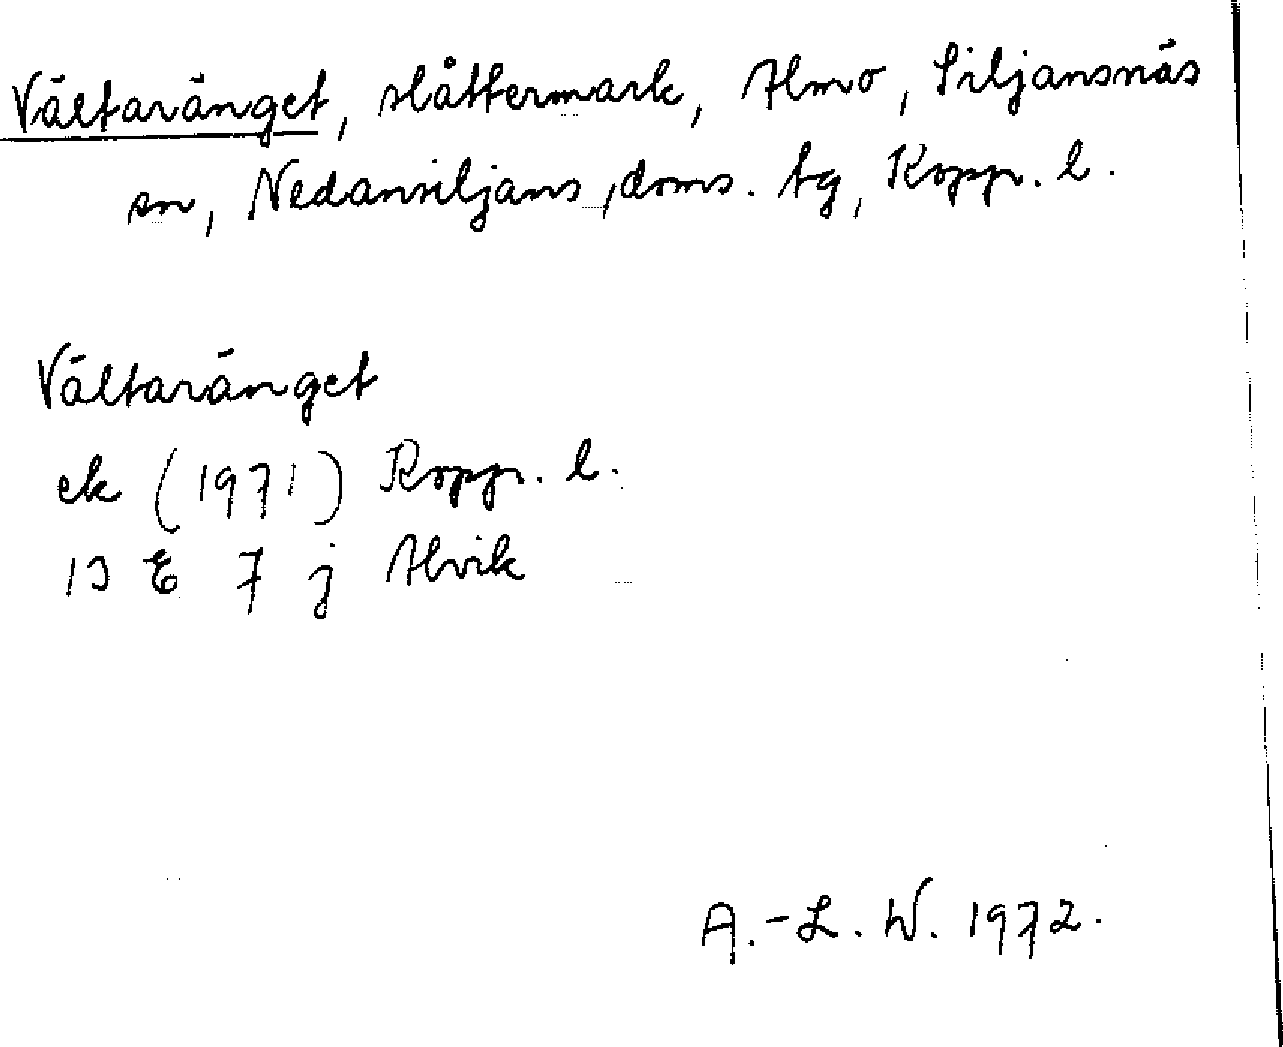 Vältaränget, slåttermark, Almo, Siljansnäs
sn, Nedansiljans, doms. tg, Kopp. l.
Vältaränget
ek (1971) Kopp. l.
13 E 7 j Alvik
A.-L. W. 1972.